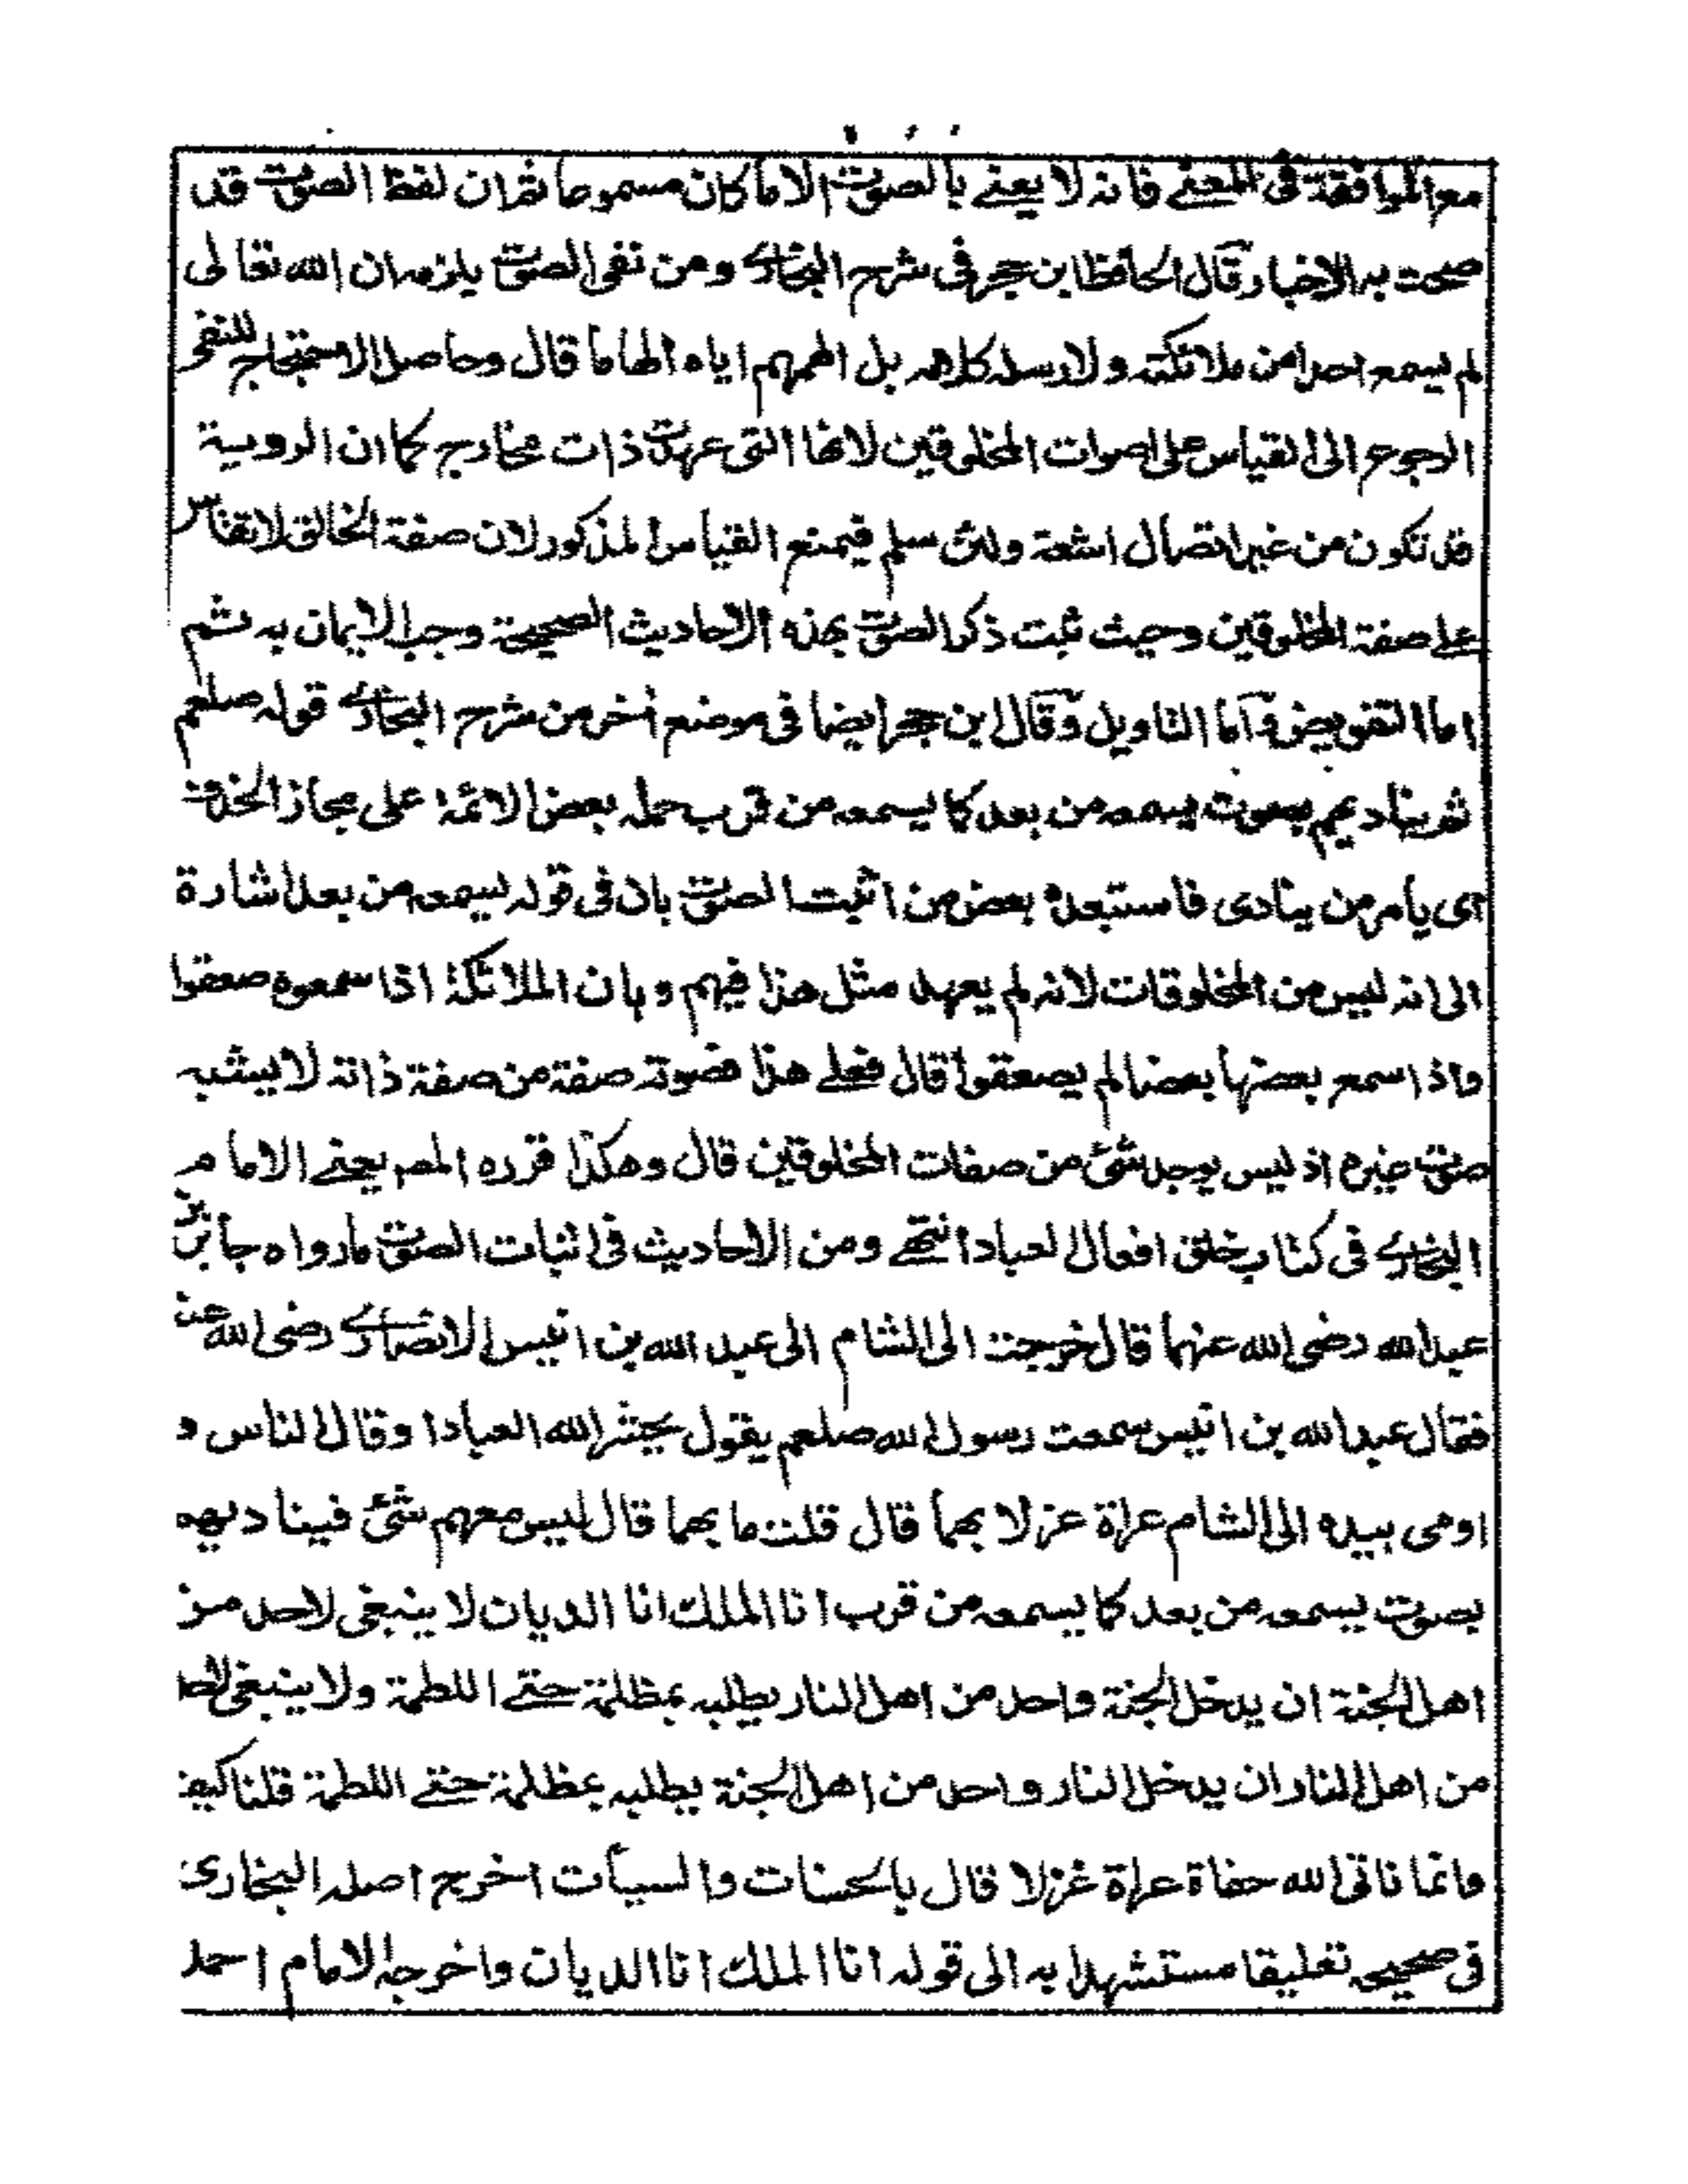 مع الموافقة فى المعنے فانه لا يعنے بالصوت الا ما كان مسموعا ثم ان لفظ الصوت قد
صحت به الاخبار وقال الحافظ ابن حجر فى شرح البخارے ومن نفى الصوت يلزمه ان الله تعالى
لم يسمع احدا من ملائكته ولا رسله كلامه بل الهمهم اياه الهاما قال وحاصل الاحتجاج للنفى
الرجوع الى القياس على اصوات المخلوقين لانها التى عهدت ذات مخارج كما ان الروية
قد تكون من غير اتصال اشعة ولئن سلم فيمنع القياس المذكور لان صفة الخالق لا تقاس
علے صفة المخلوقين وحيث ثبت ذكر الصوت بهذه الاحاديث الصحيحة وجب الايمان به ثم
اما التفويض واما التاويل وقال ابن حجر ايضا فى موضع أخر من شرح البخارے قوله صلعم
ثم يناديهم بصوت يسمعه من بعد كما يسمعه من قرب حمله بعض الائمة على مجاز الحذف
اى يأمر من ينادى فاستبعده بعض من اثبت الصوت بان فى قوله يسمعه من بعد اشارة
الى انه ليس من المخلوقات لانه لم يعهد مثل هذا فيهم وبان الملائكة اذا سمعوه صعقوا
واذا سمع بعضها بعضا لم يصعقوا قال فعلے هذا فصوته صفة من صفة ذاته لا يشبه
صوت غيره اذ ليس يوجد شئ من صفات المخلوقين قال وهكذا قرره المصـ يعنے الامام
البخارے فى كتاب خلق افعال العباد انتهے ومن الاحاديث فى اثبات الصوت ما رواه جابر بن
عبد الله رضى الله عنهما قال خرجت الى الشام الى عبد الله بن انيس الانصارے رضى الله عنه
فقال عبد الله بن انيس سمعت رسول الله صلعم يقول يحشر الله العباد او قال الناس و
اومى بيده الى الشام عراة عزلا بهما قال قلت ما بهما قال ليس معهم شئ فيناديهم
بصوت يسمعه من بعد كما يسمعه من قرب انا الملك انا الديان لا ينبغى لاحد من
اهل الجنة ان يدخل الجنة واحد من اهل النار يطلبه بمظلمة حتے اللطمة ولا ينبغى لاحد
من اهل النار ان يدخل النار واحد من اهل الجنة يطلبه بمظلمة حتے اللطمة قلنا كيف
وانما ناتى الله حفاة عراة غزلا قال بالحسنات والسيأت اخرج اصله البخارى
فى صحيحه تعليقا مستشهدا به الى قوله انا الملك انا الديان واخرجه الامام احمد